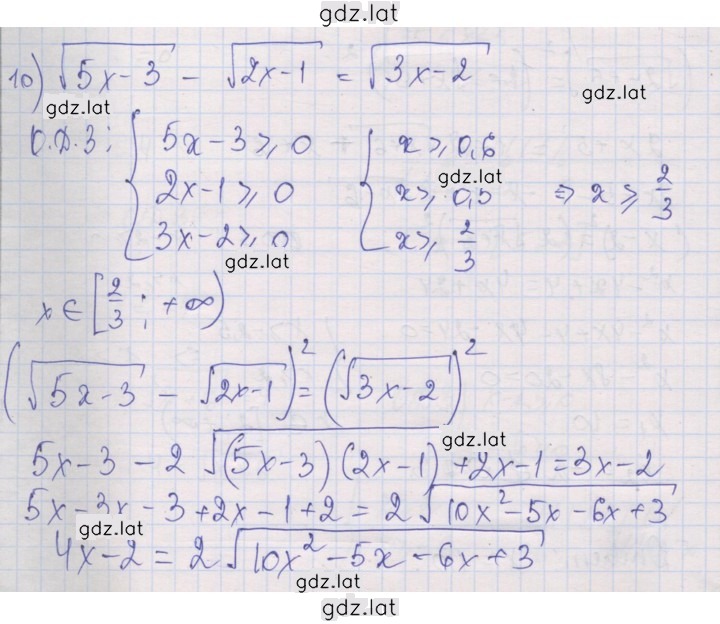 gdz.lat
10) √(5x-3) - √(2x-1) = √(3x-2)
gdz.lat
gdz.lat
О.Д.З: { 5x-3 ⩾ 0 { x ⩾ 0,6
gdz.lat
2x-1 ⩾ 0 x ⩾ 0,5 ⇒ x ⩾ 2/3
3x-2 ⩾ 0 x ⩾ 2/3
gdz.lat
x ∈ [2/3 ; +∞)
(√(5x-3) - √(2x-1))² = (√(3x-2))²
gdz.lat
5x-3 - 2√((5x-3)(2x-1)) + 2x-1 = 3x-2
5x-3x-3+2x-1+2 = 2√(10x²-5x-6x+3)
gdz.lat
4x-2 = 2√(10x²-5x-6x+3)
gdz.lat
gdz.lat